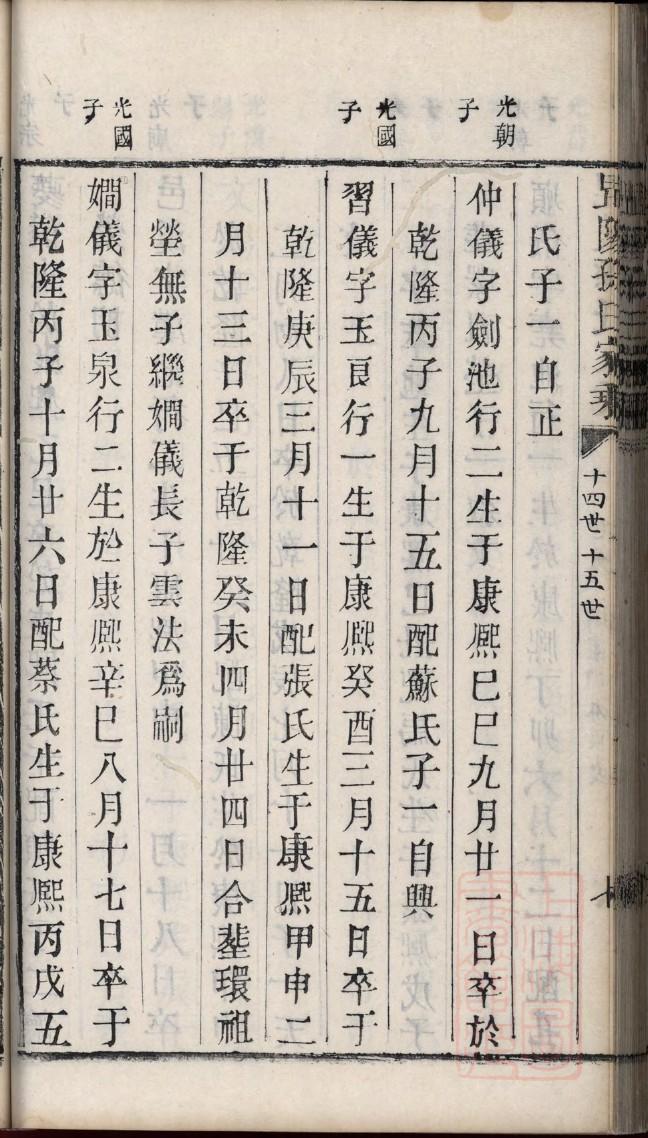 十四世十五世
順氏子一自正
光朝子
仲儀字劍池行二生于康熈巳巳九月廿一日卒於
乾隆丙子九月十五日配蘇氏子一自興
光國子
習儀字玉良行一生于康熈癸酉三月十五日卒于
乾隆庚辰三月十一日配張氏生于康熈甲申二
月十三日卒于乾隆癸未四月廿四日合塟環祖
塋無子繼嫺儀長子雲法爲嗣
光國子
嫺儀字玉泉行二生於康熈辛巳八月十七日卒于
乾隆丙子十月廿六日配蔡氏生于康熈丙戌五